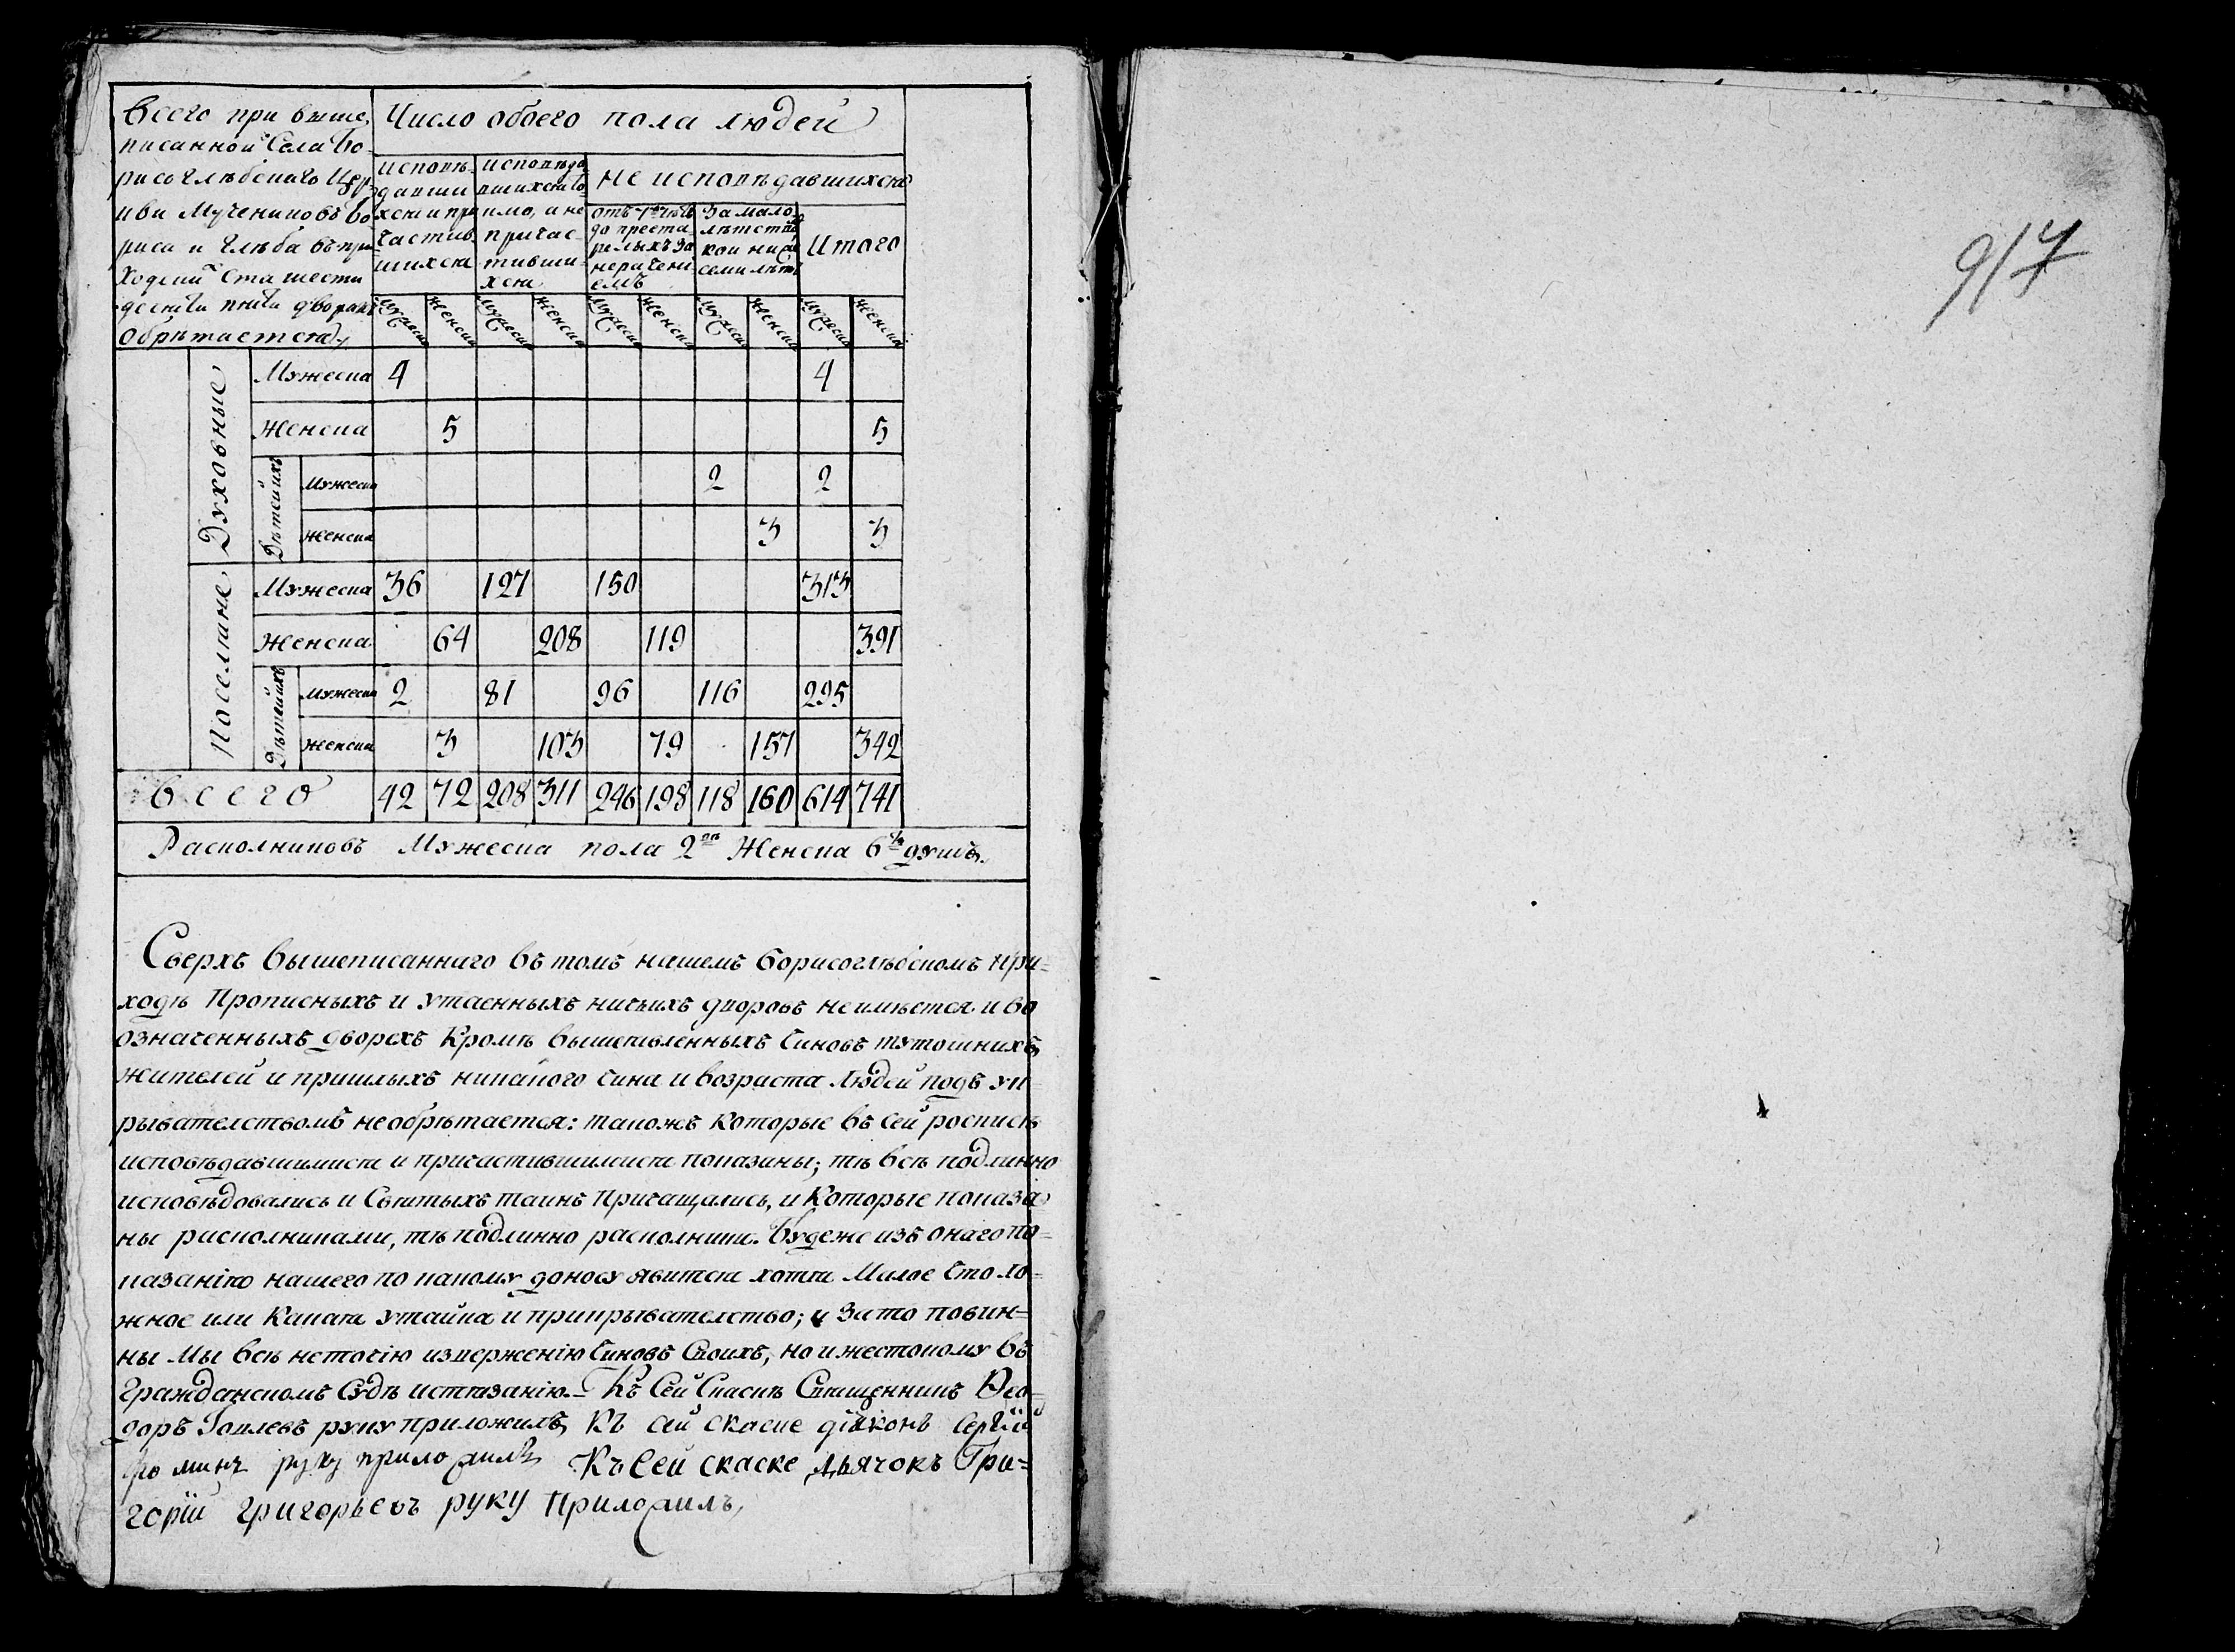 Всего при выше
писанной Села Бо-
рисоглѣбскаго Цер
кви Мучениковъ Бо
риса и Глѣба въ при
ходский ста шести
десяти пяти дворахъ
обрѣтается
Число обоего пола людей
исповѣ-
давши
хся и при
частив
шихся
исповѣдо
вшихся то
кмо, а не
причас-
тивши-
хся
не исповѣдавшихся
отъ 7ми лѣтъ
до преста-
релыхъ за
нерачени
емъ
За мало
лѣтствомъ
кои ниже
семи лѣтъ
Итого
мужеска женска мужеска женска мужеска женска мужеска женска мужеска женска
Духовные
Мужеска 4 4
Женска 5 5
Дѣтей ихъ
мужеска 2 2
женска 3 3
Поселяне
Мужеска 36 127 150 313
Женска 64 208 119 391
Дѣтей ихъ
мужеска 2 81 96 116 295
женска 3 103 79 157 342
Всего 42 72 208 311 246 198 118 160 614 741
Раскольниковъ Мужеска пола 2 Женска 6 душъ.
Сверхъ вышеписаннаго въ томъ нашемъ Борисоглѣбскомъ при-
ходѣ Прописныхъ и утаенныхъ ничьихъ дворовъ неимѣется. и во
означенныхъ дворехъ Кромѣ вышеявленныхъ Чиновъ тутошнихъ
жителей и пришлыхъ никакого чина и возраста людей подъ ук-
рывателствомъ необрѣтается: такожъ которые въ сей росписѣ
исповѣдавшимися и причастившимися показаны; тѣ всѣ подлинно
исповѣдовались и Святыхъ таинъ Причащались, и Которые показа
ны раскольниками, тѣ подлинно раскольники. Будеже изъ онаго по-
казанiя нашего по какому доносу явится хотя Малое что ло-
жное или Какая утайка и прикрывателство; и За то повин-
ны Мы всѣ неточiю изверженiю Чиновъ Своихъ, но и жестокому въ
гражданскомъ Судѣ истязанiю. Къ Сей Скаскѣ Священникъ Ѳео-
доръ руку приложилъ, Къ сей скаске дiяконъ Сергiй
Фоминъ руку приложилъ Къ Сей скаске дьячокъ Гри-
горiй григорьевъ руку приложилъ,
917